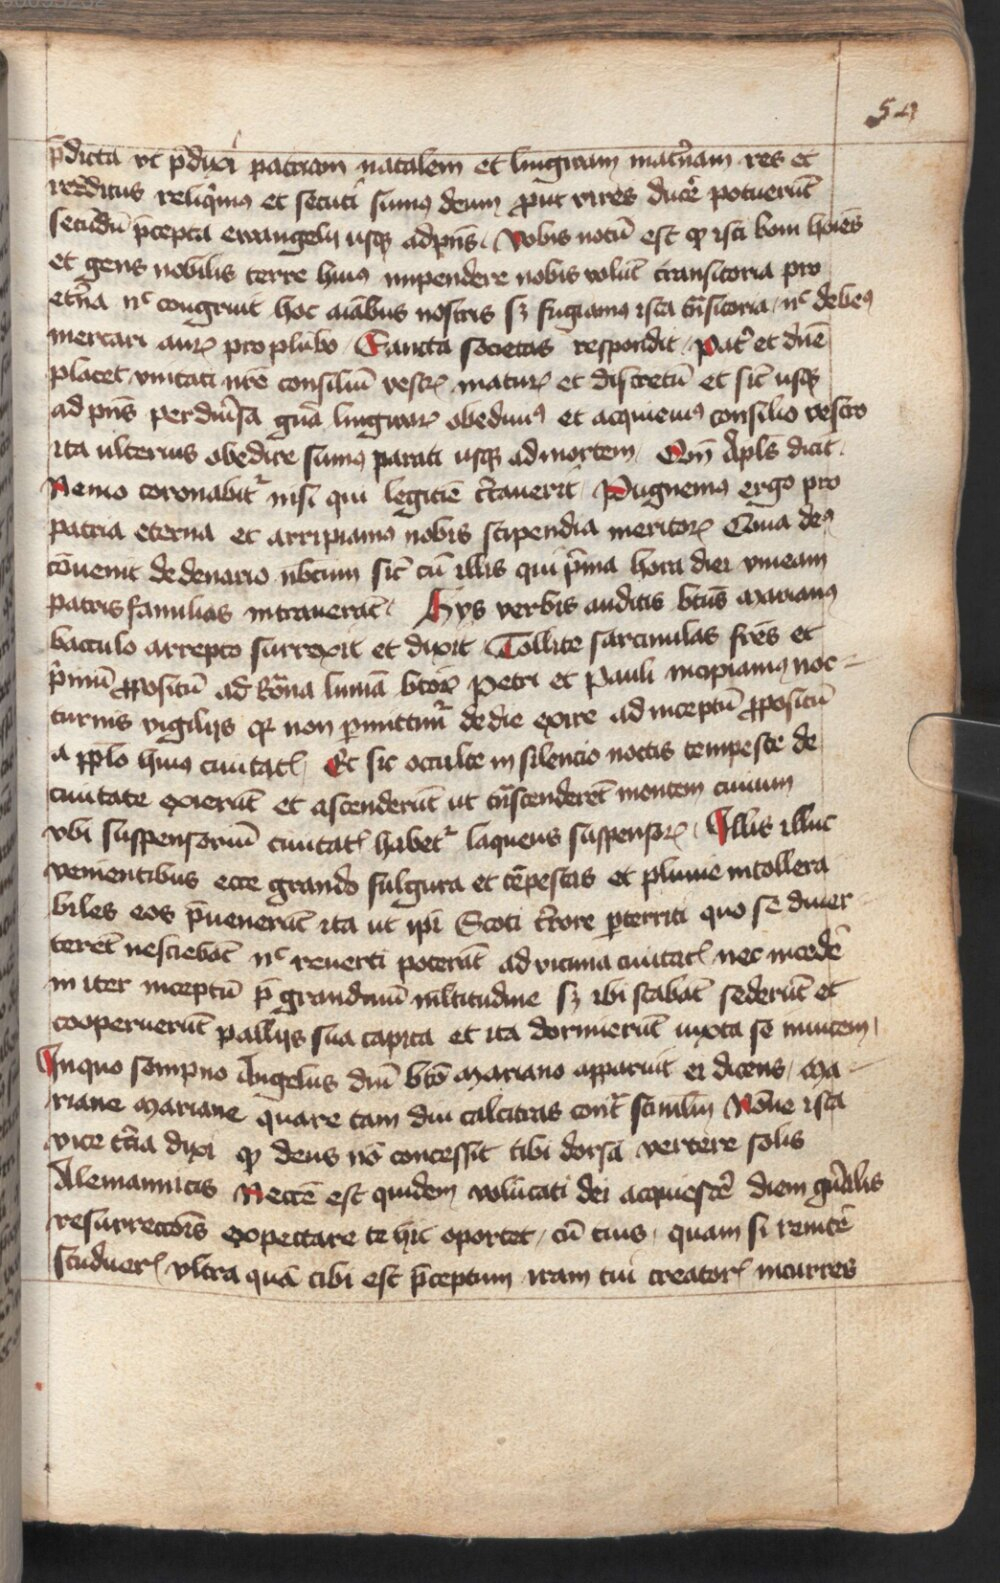 54
p̄dicta vt p̄dixi patriam natalem et lingwam mat̉nam res et
redditus reliq̉mus et secuti sumꝯ deum ꝓut vires duce̅ potuerūt
secūdū p̄cepta ewangelij usqꝫ ad p̅ns. Vobis notū est ꝙ isti boni hoi̅es
et gens nobilis terre huiꝯ impendere nobis volūt transitoria pro
et̉na nͨ congruit hoc ai̅abus nostris sꝫ fugiamꝯ ista t̅nsitoria nͨ debeꝯ
mercari auꝝ pro plūbo Sancta societas respondit Pat̉ et dn̅e
placet vnitati nr̅e consiliū vestꝝ matuꝝ et discretū et sic̅ usqꝫ
ad p̅ns per diu̅sa gn̅a lingwaꝝ obediuīꝯ et acquieuīꝯ consilio vestro
ita ulterius obedire sumꝯ parati usqꝫ ad mortem Qm̅ Apl̅s dicit
Nemo coronabit᷑ nisi qui legitie̅ c̉tauerit Pugnemꝯ ergo pro
patria eterna et arripiamꝯ nobis stipendia meritoꝝ Qͥa deꝯ
cōuenit de denario nbc̅um sic̅ cū illis qui p̉ma hora diei vineam
patris familias intrauerāt Hys verbis auditis bt̅us Marianꝯ
baculo arrepto surrexit et dixit Tollite sarcinulas fr̅es et
p̉mū ꝓpositū ad Ro̅na limia̅ bt̅oꝝ Petri et Pauli incipiamꝯ noc
turnis vigilijs ꝙ non ꝑmittim᷑ de die exire ad inceptū ꝓpositū
a pp̅lo huiꝯ ciuitatꝭ Et sic occulte in silencio noctis tempeste de
ciuitate exierūt et ascenderūt ut t̅nscenderēt montem ciuium
vbi suspensoriū ciuitatꝭ habet᷑ laqueus suspensoꝝ Illis illuc
venientibus ecce grando fulgura et te̅pestas et pluuie intollera
biles eos p̄uenerūt ita ut ip̅i Scoti t̉rore ꝑterriti quo se diuer
terēt nesciebāt nͨ reuerti poterāt ad vicina ciuitatꝭ nec incede̅
in iter inceptū p̄ grandinū ml̅titudine sꝫ ibi stabāt sederūt et
cooperuerūt pallijs sua capita et ita dormierūt iuxta se inuicem
In quo sompno Angelus dn̅i bt̅o Mariano apparuit ei dicens Ma
riane Mariane quare tam diu calcitras cont̅ stiml̅m No̅ne ista
vice t̉cia dixi ꝙ deus nō concessit tibi dorsa vertere solis
Alemannicis Necce̅ est quidem volūtati dei acquiesce̅ diem gn̅alis
resurrecciōis expectare te hic oportet cū tuis quam si renite̅
studuerꝭ vltra quā tibi est p̄ceptum iram tui creatorꝭ incurres